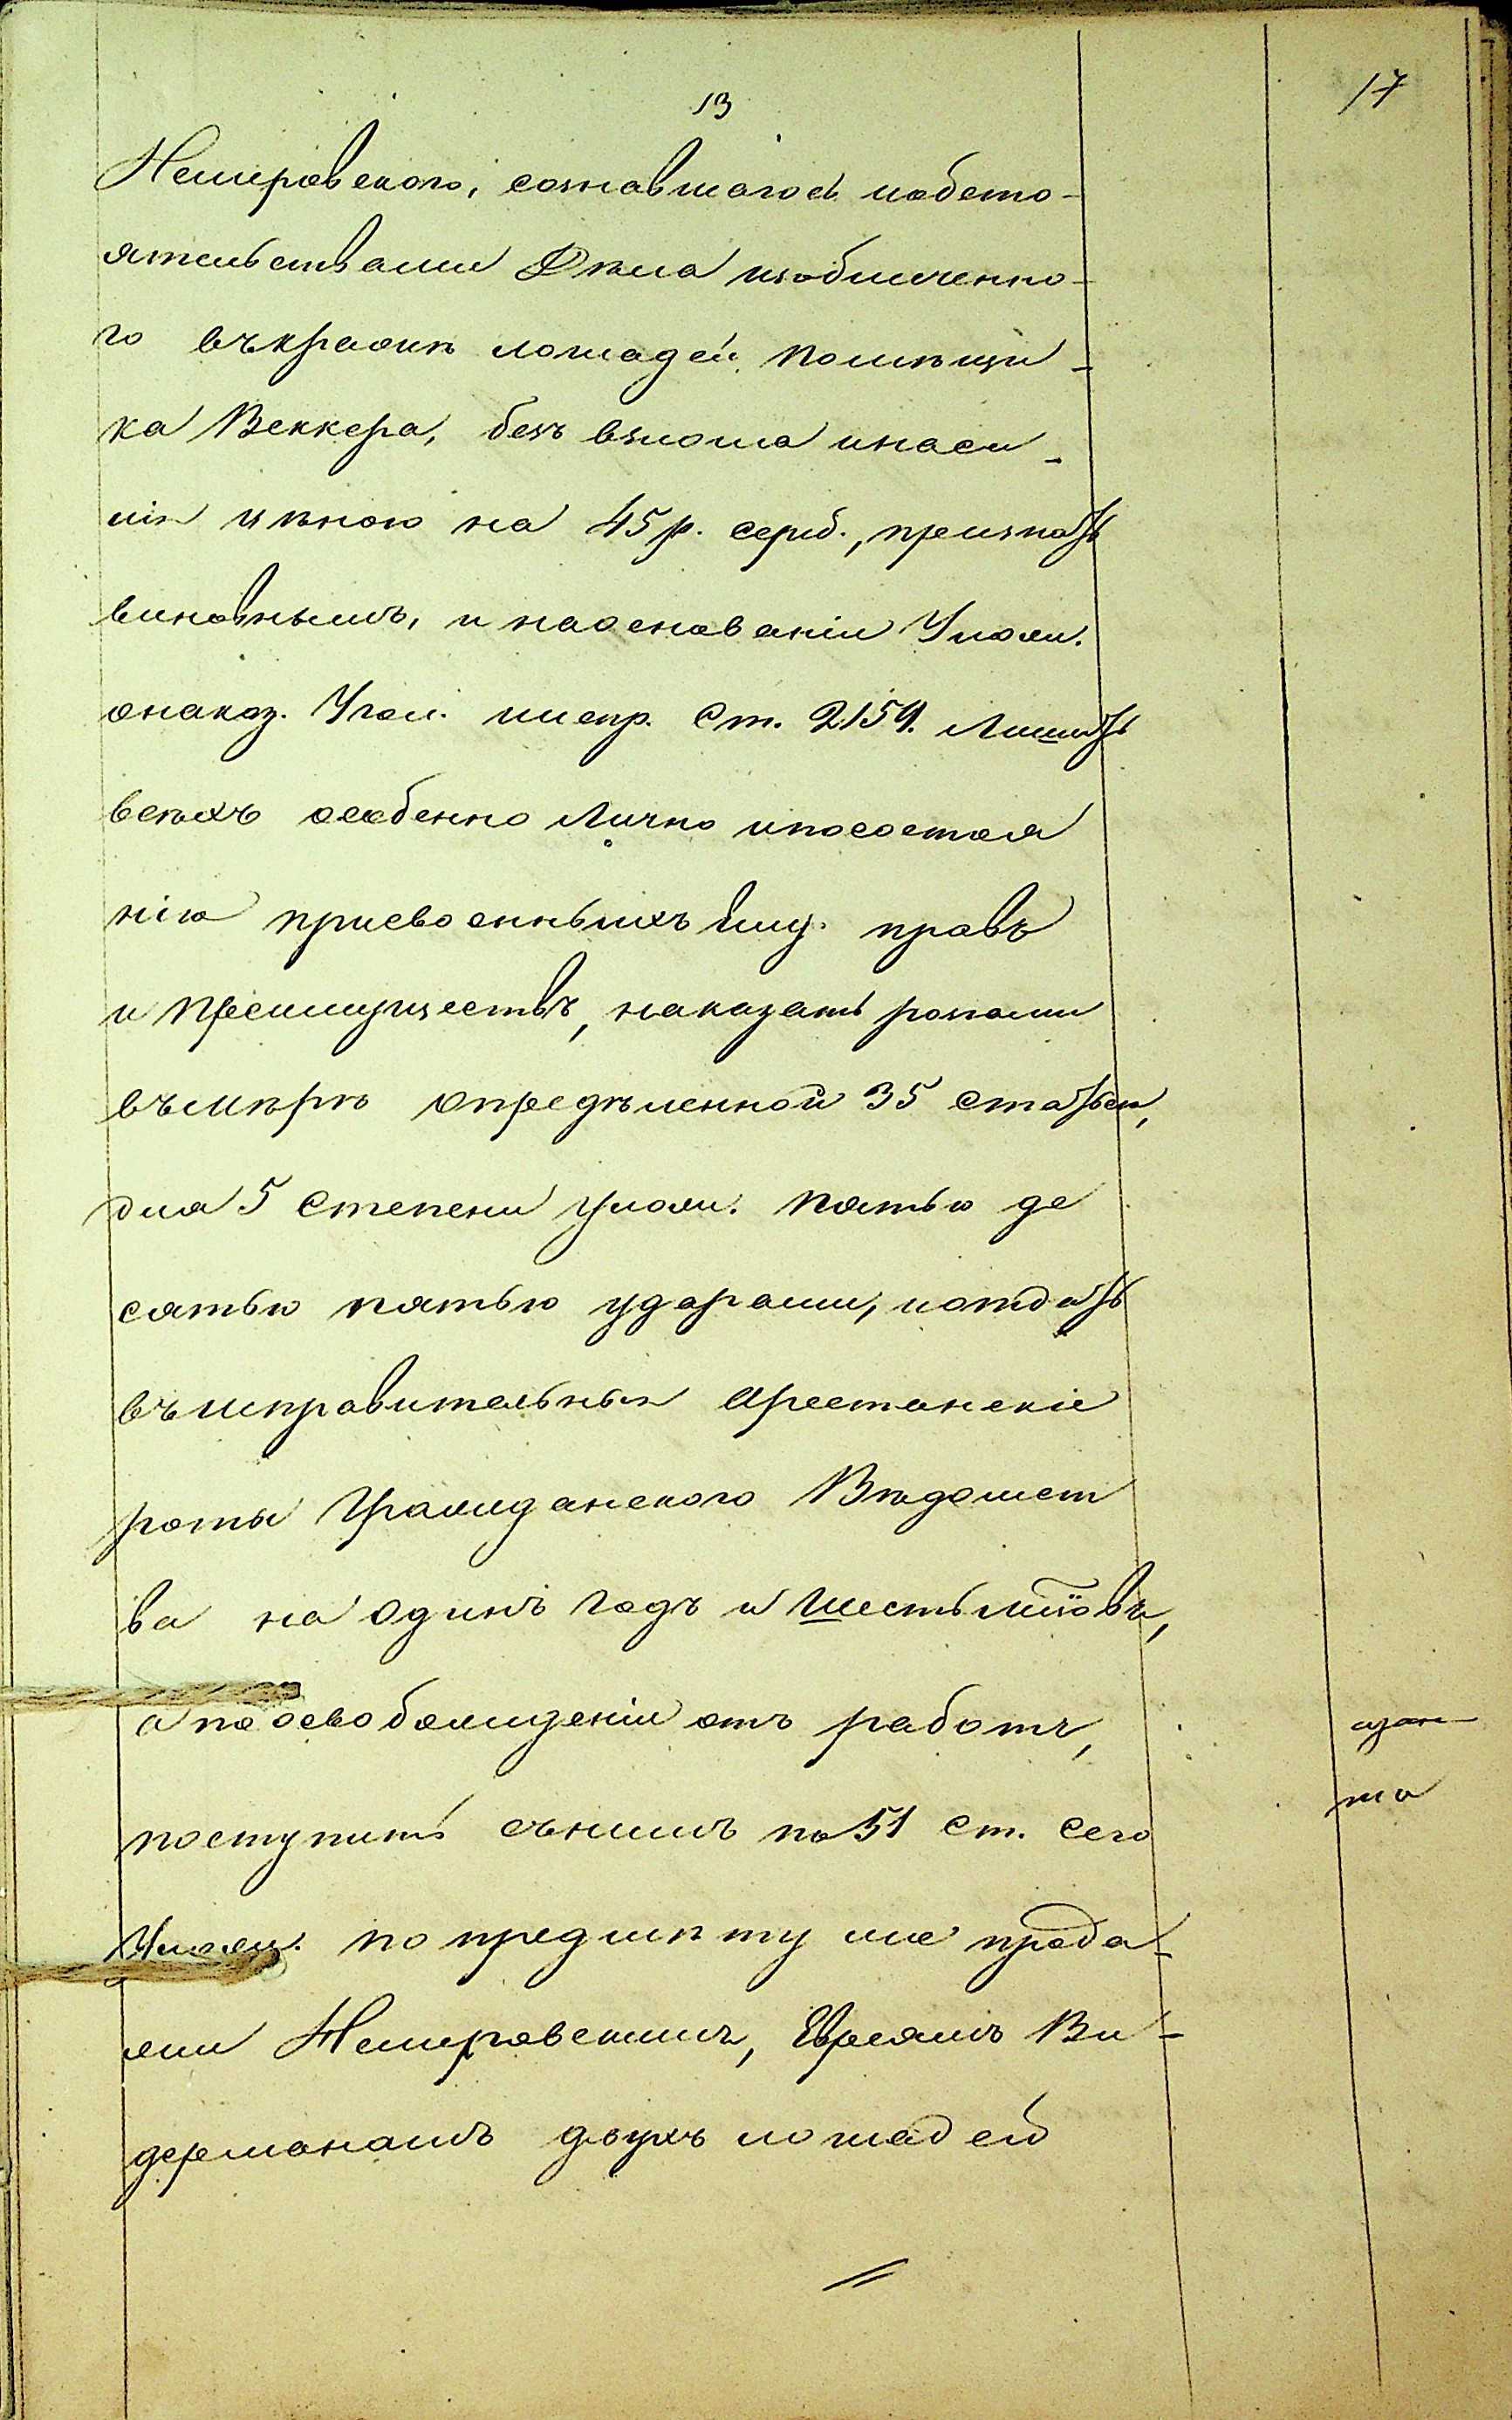 13
17
Немеровского, сознавшагося иобсто-
ятельствами Дѣла изобличенно-
го въкражѣ лошадей помѣщи-
ка Беккера, безъ взлома инаси-
лія цѣною на 45 р. сереб., признать
виновнымъ, и наоснованіи Улож.
онаказ. Угол. ииспр. Ст. 2159. Лишить
всѣхъ особенно Лично ипосостоя
нію присвоенныхъ ему. правъ
и преимуществъ, наказать розгами
въмѣрѣ опредѣленной 35 статьею,
для 5 степени улож. пятью де
сятью пятью ударами, иотдать
въисправительныя арестанскіе
роты Гражданского Вѣдомст
ва на одинъ годъ и шесть мцовъ,
а по освобожденіи отъ работъ,
поступить сънимъ по 51 ст. сего
Улож. по предмѣту же прода-
жи Немеровскимъ, Евреямъ Би-
дерманамъ двухъ лошадей
та